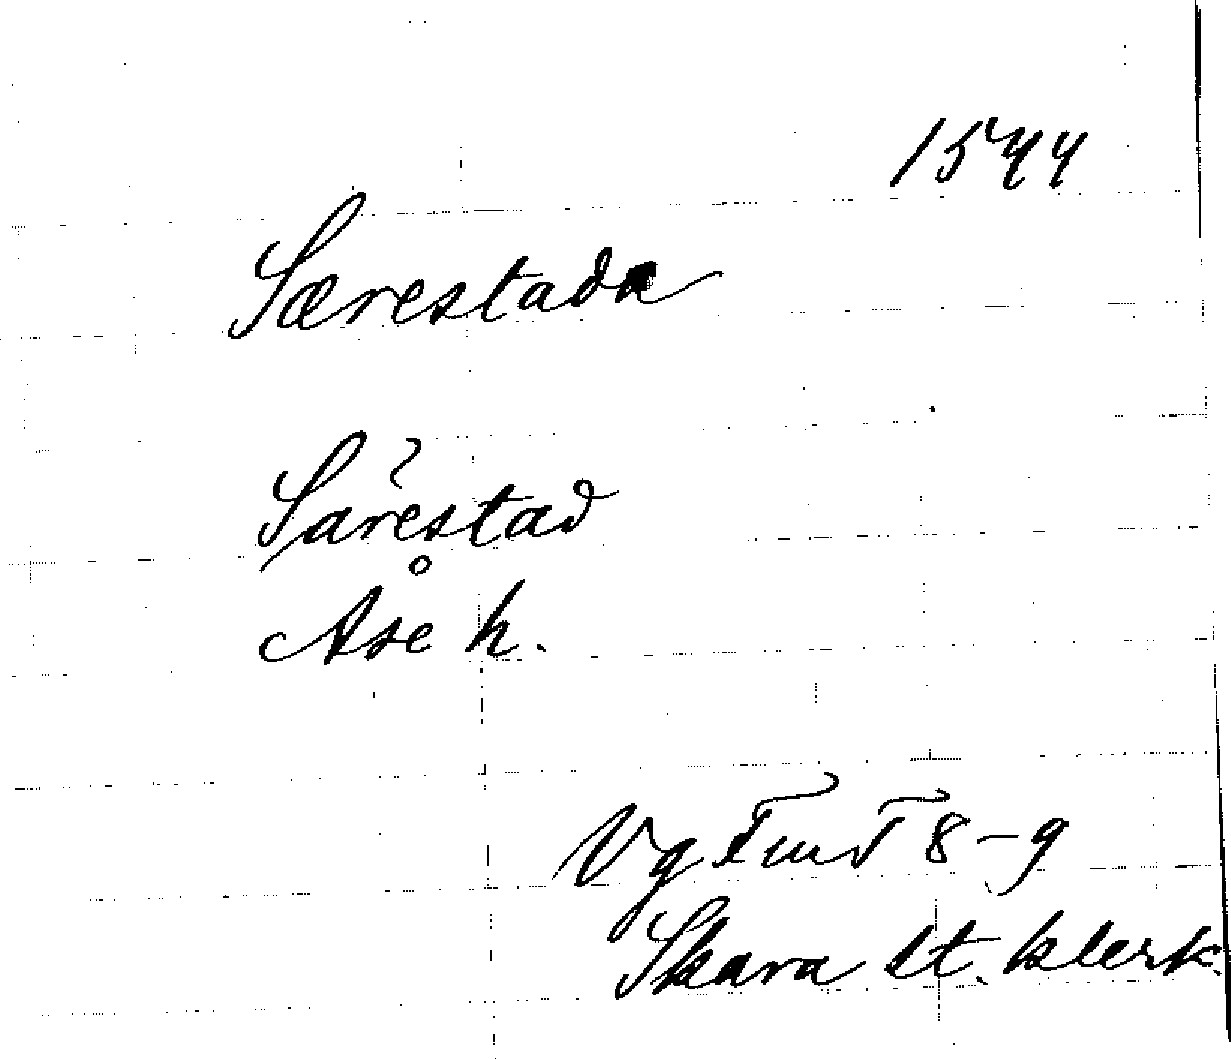 1544
Særestada
Sarestad
Åse h.
Vg FmT 8-9
Skara st. klerk.